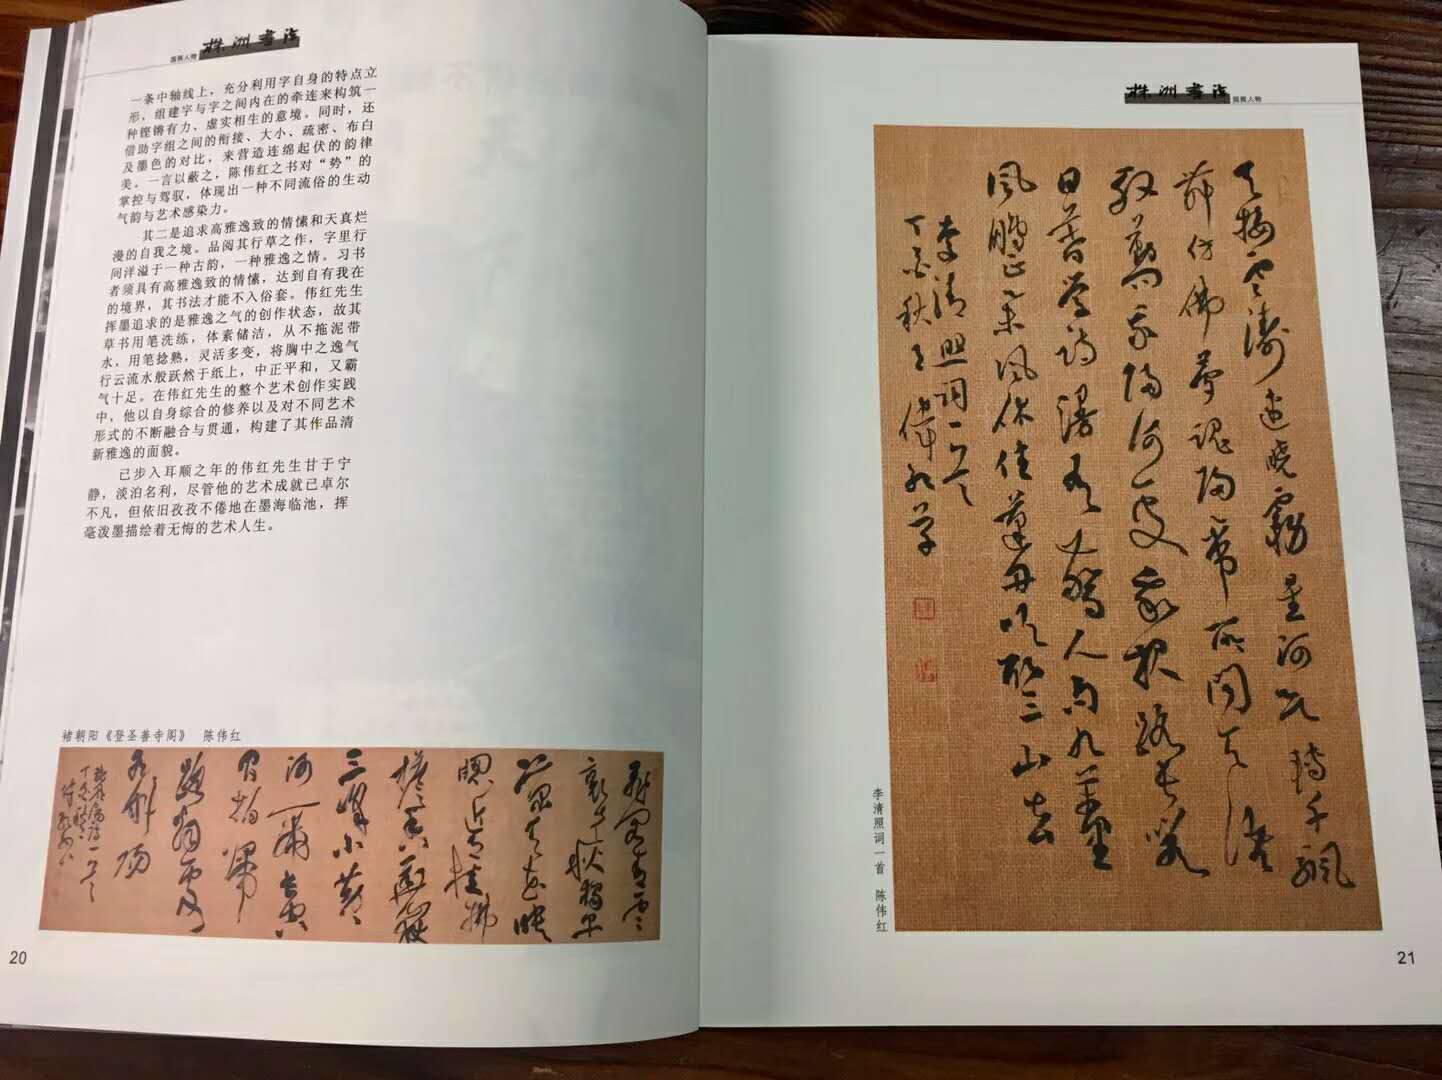 株洲书法
一条中轴线上，充分利用字自身的特点立
形，组建字与字之间内在的牵连来构筑一
种铿锵有力、虚实相生的意境。同时，还
借助字组之间的衔接、大小、疏密、布白
及墨色的对比，来营造连绵起伏的韵律
美。一言以蔽之，陈伟红之书对“势”的
掌控与驾驭，体现出一种不同流俗的生动
气韵与艺术感染力。
其二是追求高雅逸致的情愫和天真烂
漫的自我之境。品阅其行草之作，字里行
间洋溢于一种古韵，一种雅逸之情。习书
者须具有高雅逸致的情愫，达到自有我在
的境界，其书法才能不入俗套。伟红先生
挥墨追求的是雅逸之气的创作状态，故其
草书用笔洗练，体素储洁，从不拖泥带
水，用笔捻熟，灵活多变，将胸中之逸气
行云流水般跃然于纸上，中正平和，又霸
气十足。在伟红先生的整个艺术创作实践
中，他以自身综合的修养以及对不同艺术
形式的不断融合与贯通，构建了其作品清
新雅逸的面貌。
已步入耳顺之年的伟红先生甘于宁
静，淡泊名利，尽管他的艺术成就已卓尔
不凡，但依旧孜孜不倦地在墨海临池，挥
毫泼墨描绘着无悔的艺术人生。
褚朝阳《登圣善寺阁》 陈伟红
20
株洲书法
天接云涛连晓雾星河欲转千帆
舞仿佛梦魂归帝所闻天语
殷勤问我归何处我报路长嗟
日暮学诗漫有惊人句九万里
风鹏正举风休住蓬舟吹取三山去
李清照词一首
丁酉秋月伟红学
李清照词一首 陈伟红
21